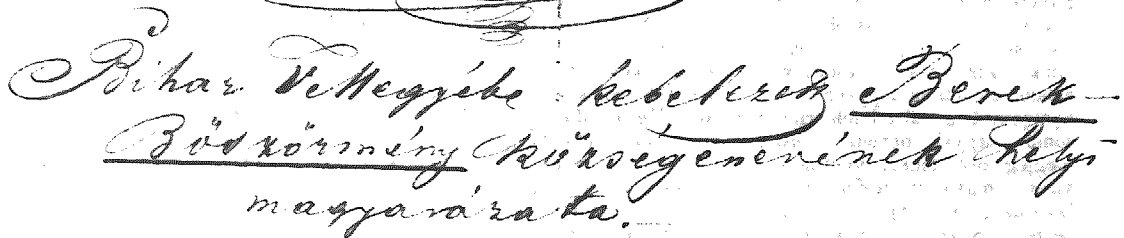 Bihar VeMegyébe kebelezett Berek-
Böszörmény községenevének helyi
magyarázata.